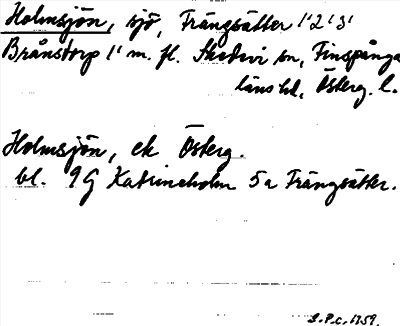 Holmsjön, sjö, Trängsätter 1¹ 2¹ 3¹
Brånstorp 1¹ m. fl. Skedevi sn, Finspånga
läns hd, Österg. l.
Holmsjön, ek Österg.
bl. 9G Katrineholm 5a Trängsätter.
S.P.c. 1959.